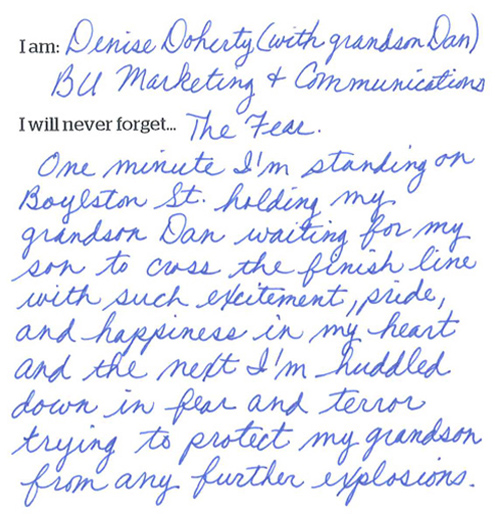 I am: Denise Doherty (with grandson Dan)
BU Marketing + Communications
I will never forget... The Fear.
One minute I'm standing on
Boylston St. holding my
grandson Dan waiting for my
son to cross the finish line
with such excitement, pride,
and happiness in my heart
and the next I'm huddled
down in fear and terror
trying to protect my grandson
from any further explosions.